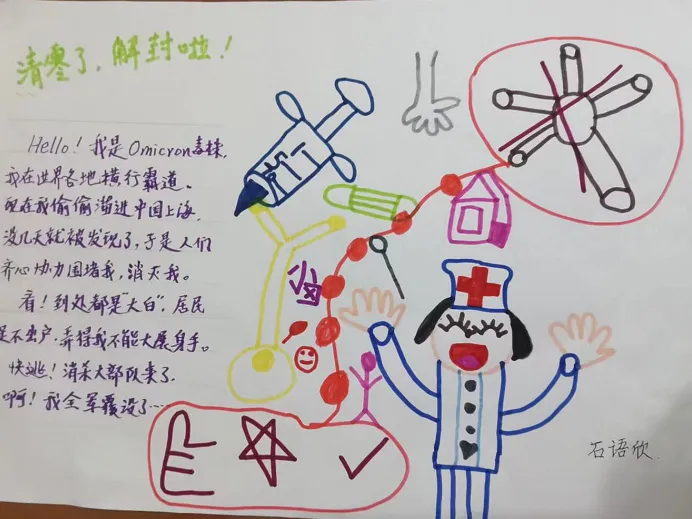 清零了，解封啦！
Hello！我是Omicron毒株，
我在世界各地横行霸道。
现在我偷偷溜进中国上海，
没几天就被发现了，于是人们
齐心协力围堵我，消灭我。
看！到处都是“大白”，居民
足不出户，弄得我不能大展身手。
快逃！消杀大部队来了，
啊！我全军覆没了……
石语欣